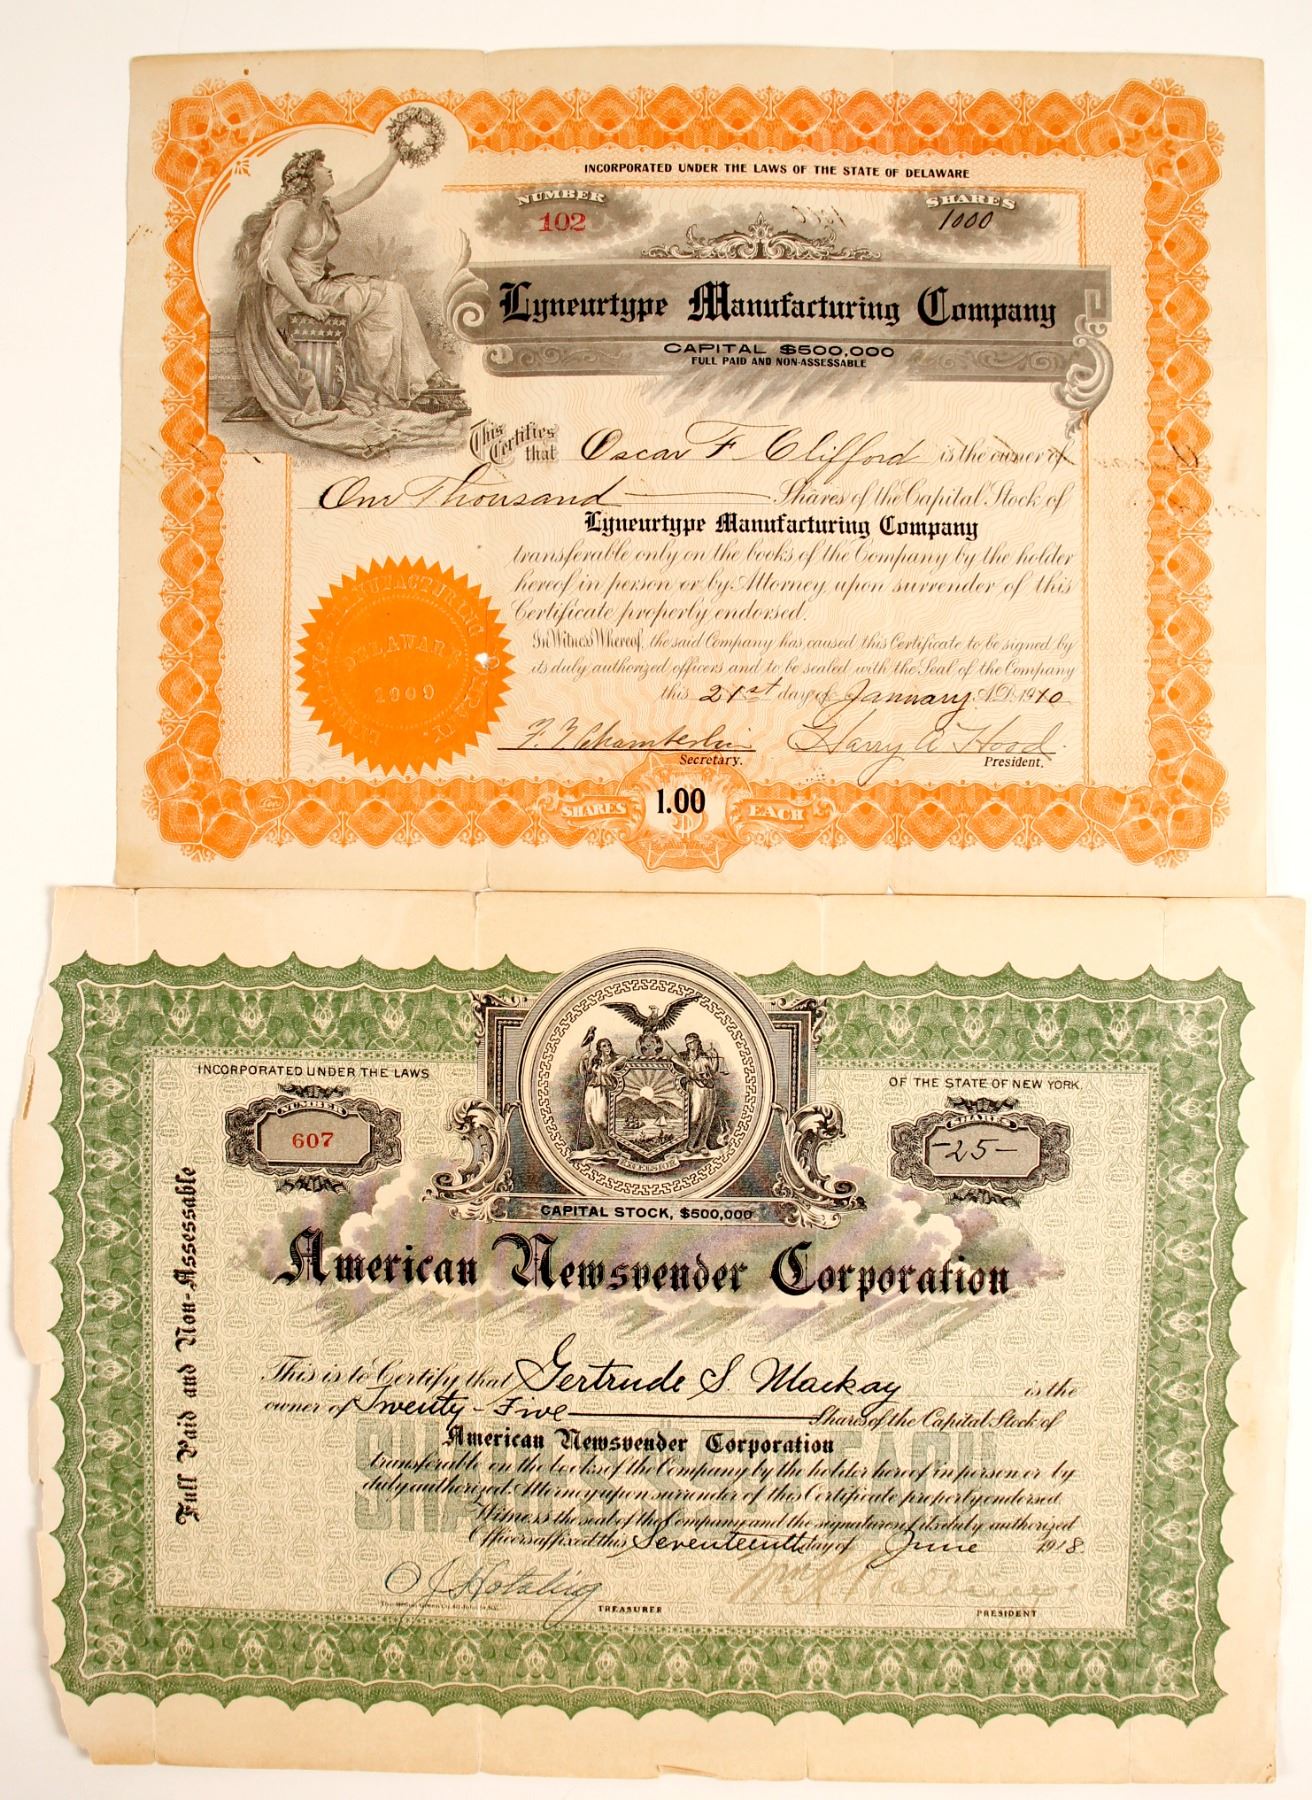 INCORPORATED UNDER THE LAWS OF THE STATE OF DELAWARE
NUMBER
102
SHARES
1000
Lyneurtype Manufacturing Company
CAPITAL $500,000
FULL PAID AND NON-ASSESSABLE
This Certifies that Oscar F. Clifford is the owner of
One Thousand Shares of the Capital Stock of
Lyneurtype Manufacturing Company
transferable only on the books of the Company by the holder
hereof in person or by Attorney upon surrender of this
Certificate properly endorsed.
In Witness Whereof, the said Company has caused this Certificate to be signed by
its duly authorized officers and to be sealed with the Seal of the Company
this 21st day of January A.D. 1910
MANUFACTURING
DELAWARE
1909
F. Chamberlin
Secretary.
Harry A. Hood
President.
SHARES
1.00
EACH
INCORPORATED UNDER THE LAWS
OF THE STATE OF NEW YORK.
NUMBER
607
SHARES
-25-
EXCELSIOR
CAPITAL STOCK, $500,000
American Newsvender Corporation
Full Paid and Non-Assessable
This is to Certify that Gertrude S. Mackay is the
owner of Twenty-Five Shares of the Capital Stock of
American Newsvender Corporation
transferable on the books of the Company by the holder hereof in person or by
duly authorized Attorney upon surrender of this Certificate properly endorsed.
Witness the seal of the Company and the signatures of its duly authorized
Officers affixed this Seventeenth day of June 1918.
J. Hotaling
TREASURER
PRESIDENT